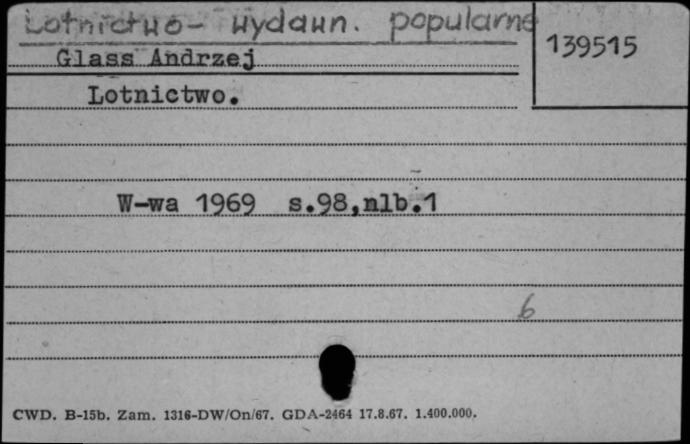 Lotnictwo- wydawn. popularne
139515
Glass Andrzej
Lotnictwo.
W-wa 1969 s.98,nlb.1
6
CWD. B-15b. Zam. 1316-DW/On/67. GDA-2464 17.8.67. 1.400.000.